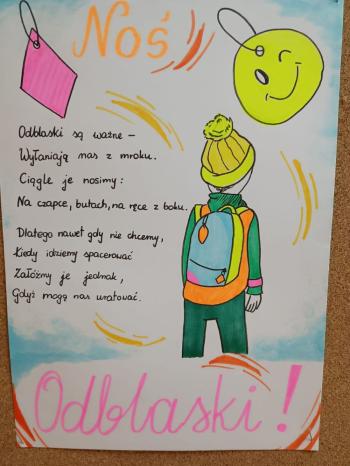 Noś
Odblaski są ważne –
Wyłaniają nas z mroku.
Ciągle je nosimy:
Na czapce, butach, na ręce z boku.
Dlatego nawet gdy nie chcemy,
Kiedy idziemy spacerować
Załóżmy je jednak,
Gdyż mogą nas uratować.
Odblaski!